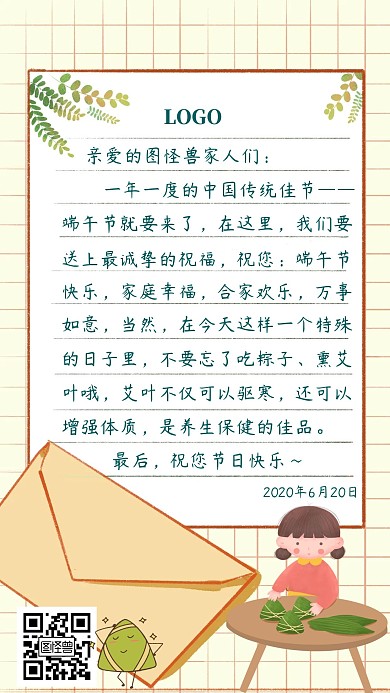 LOGO
亲爱的图怪兽家人们：
一年一度的中国传统佳节——
端午节就要来了，在这里，我们要
送上最诚挚的祝福，祝您：端午节
快乐，家庭幸福，合家欢乐，万事
如意，当然，在今天这样一个特殊
的日子里，不要忘了吃粽子、熏艾
叶哦，艾叶不仅可以驱寒，还可以
增强体质，是养生保健的佳品。
最后，祝您节日快乐～
2020年6月20日
图怪兽